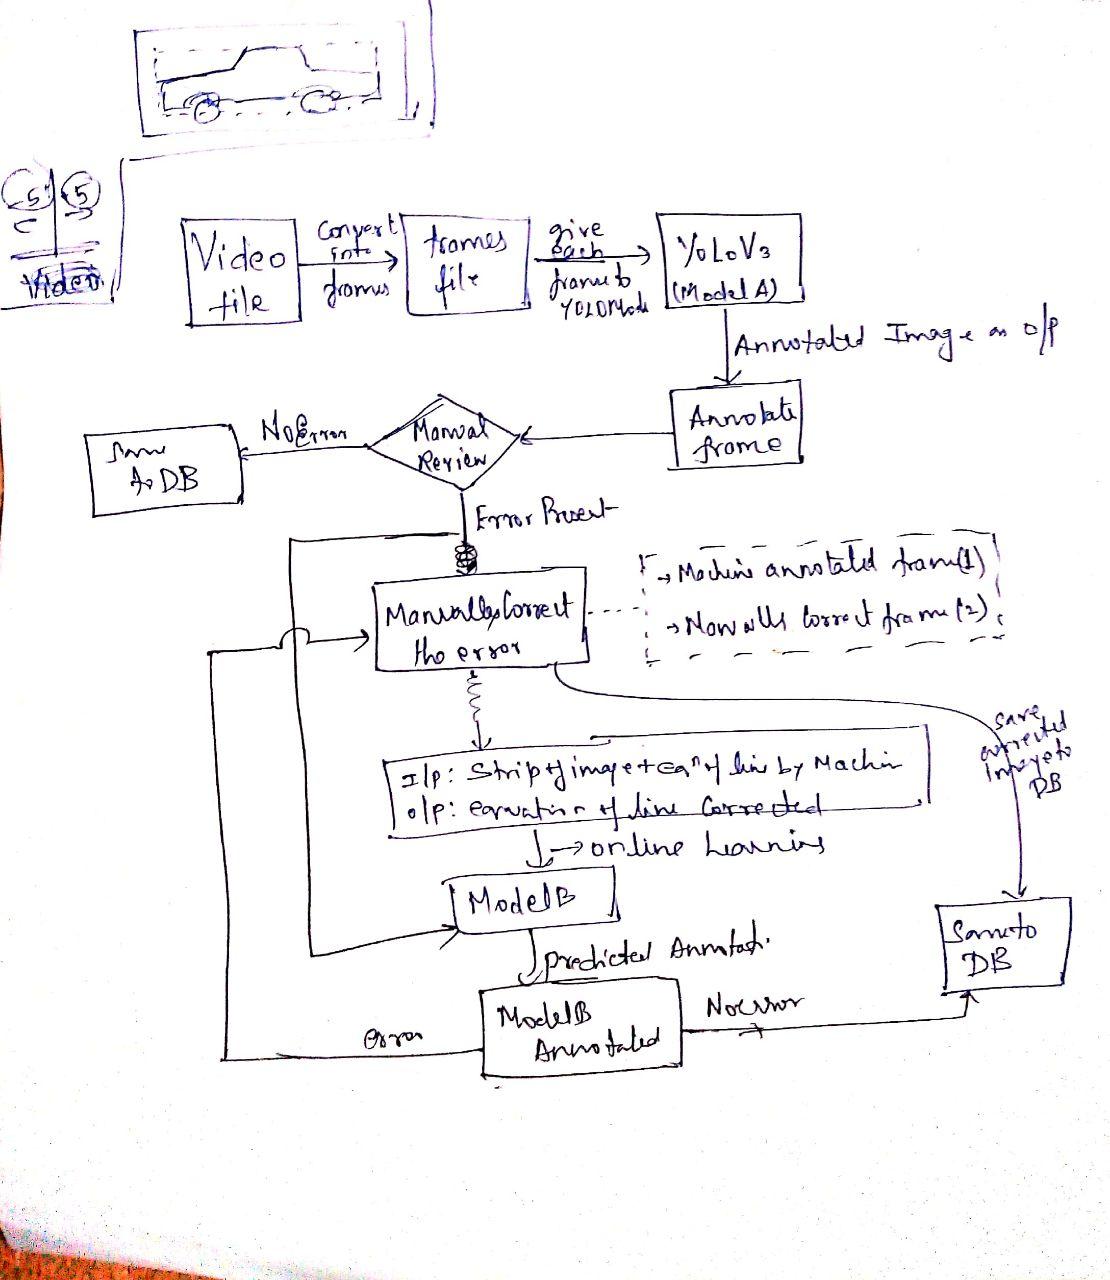 5 5
Video
Video
file
Convert
into
frames
frames
file
give
each
frame to
YOLO Mode
YOLOV3
(Model A)
Annotated Image as o/p
Annotate
frame
Manual
Review
No Error
Save
to DB
Error Present
Manually Correct
the error
→ Machine annotated frame (1)
→ Manually Correct frame (2)
Save
corrected
Image to
DB
I/p: Strip of image + Eqn of line by Machin
o/p: equation of line Corrected
→ online Learning
Model B
predicted Annotati.
Model B
Annotated
error
No error
Save to
DB